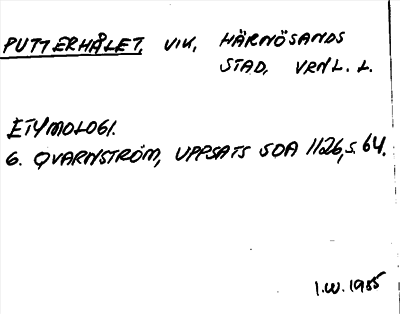 PUTTERHÅLET, VIK, HÄRNÖSANDS
STAD, VRNL. L.
ETYMOLOGI.
G. QVARNSTRÖM, UPPSATS SOA 1126, S. 64.
I.W. 1985